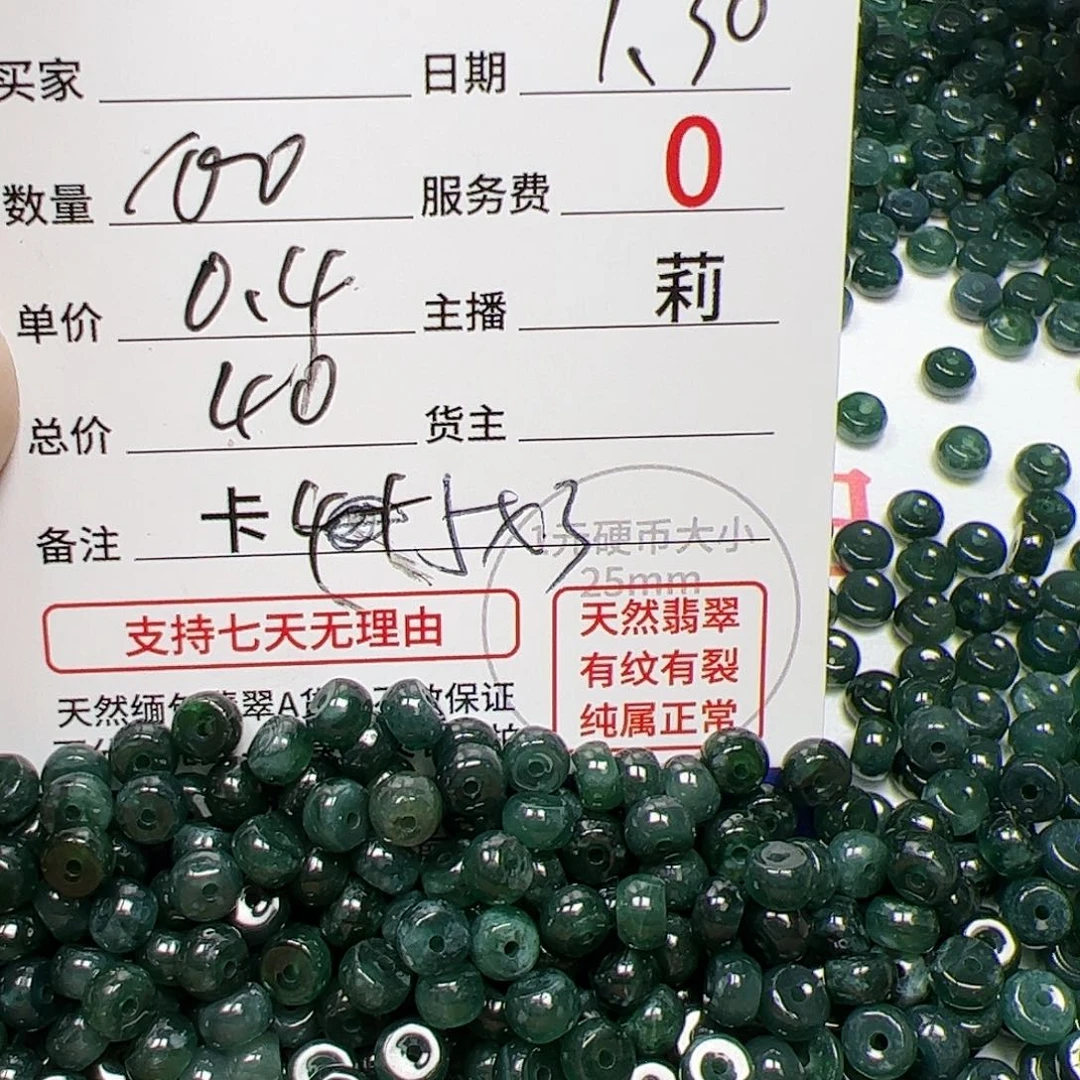 买家 日期 1、30
数量 100 服务费 0
单价 0.4 主播 莉
总价 40 货主
备注 卡 5×3
1元硬币大小
25mm
支持七天无理由
天然翡翠
有纹有裂
纯属正常
天然缅 翠A货 保证